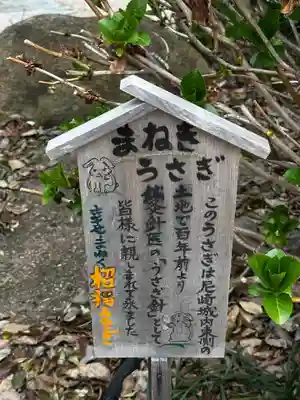 まねき
うさぎ
このうさぎは尼崎城内東側の
土地で百年前より
鍼灸針医の「うさぎ針」として
皆様に親しまれて来ました
招福